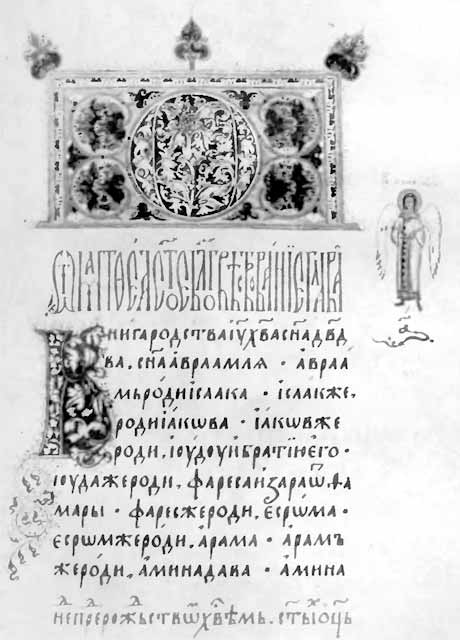 ѾМАТѲЕАСТ҃ОЕБЛ҃ГОВѢСТВОВАНЇЕ
Книга родства іѵ҃ хв҃а сн҃а дв҃д
ва, сн҃а авраамлѧ · авраа
мъ роди ісаака · ісаак же,
роди іакѡва · іакѡв же
роди, іоудоу и братїю его ·
іоуда же роди, фареса и зара ѿ ѳа
мары · фарес же роди, есрѡма ·
есрѡм же роди, арама · арамъ
же роди, аминадава · амина
рожьством хв҃ѣмь. ст҃ыⷯ ѿц҃ь